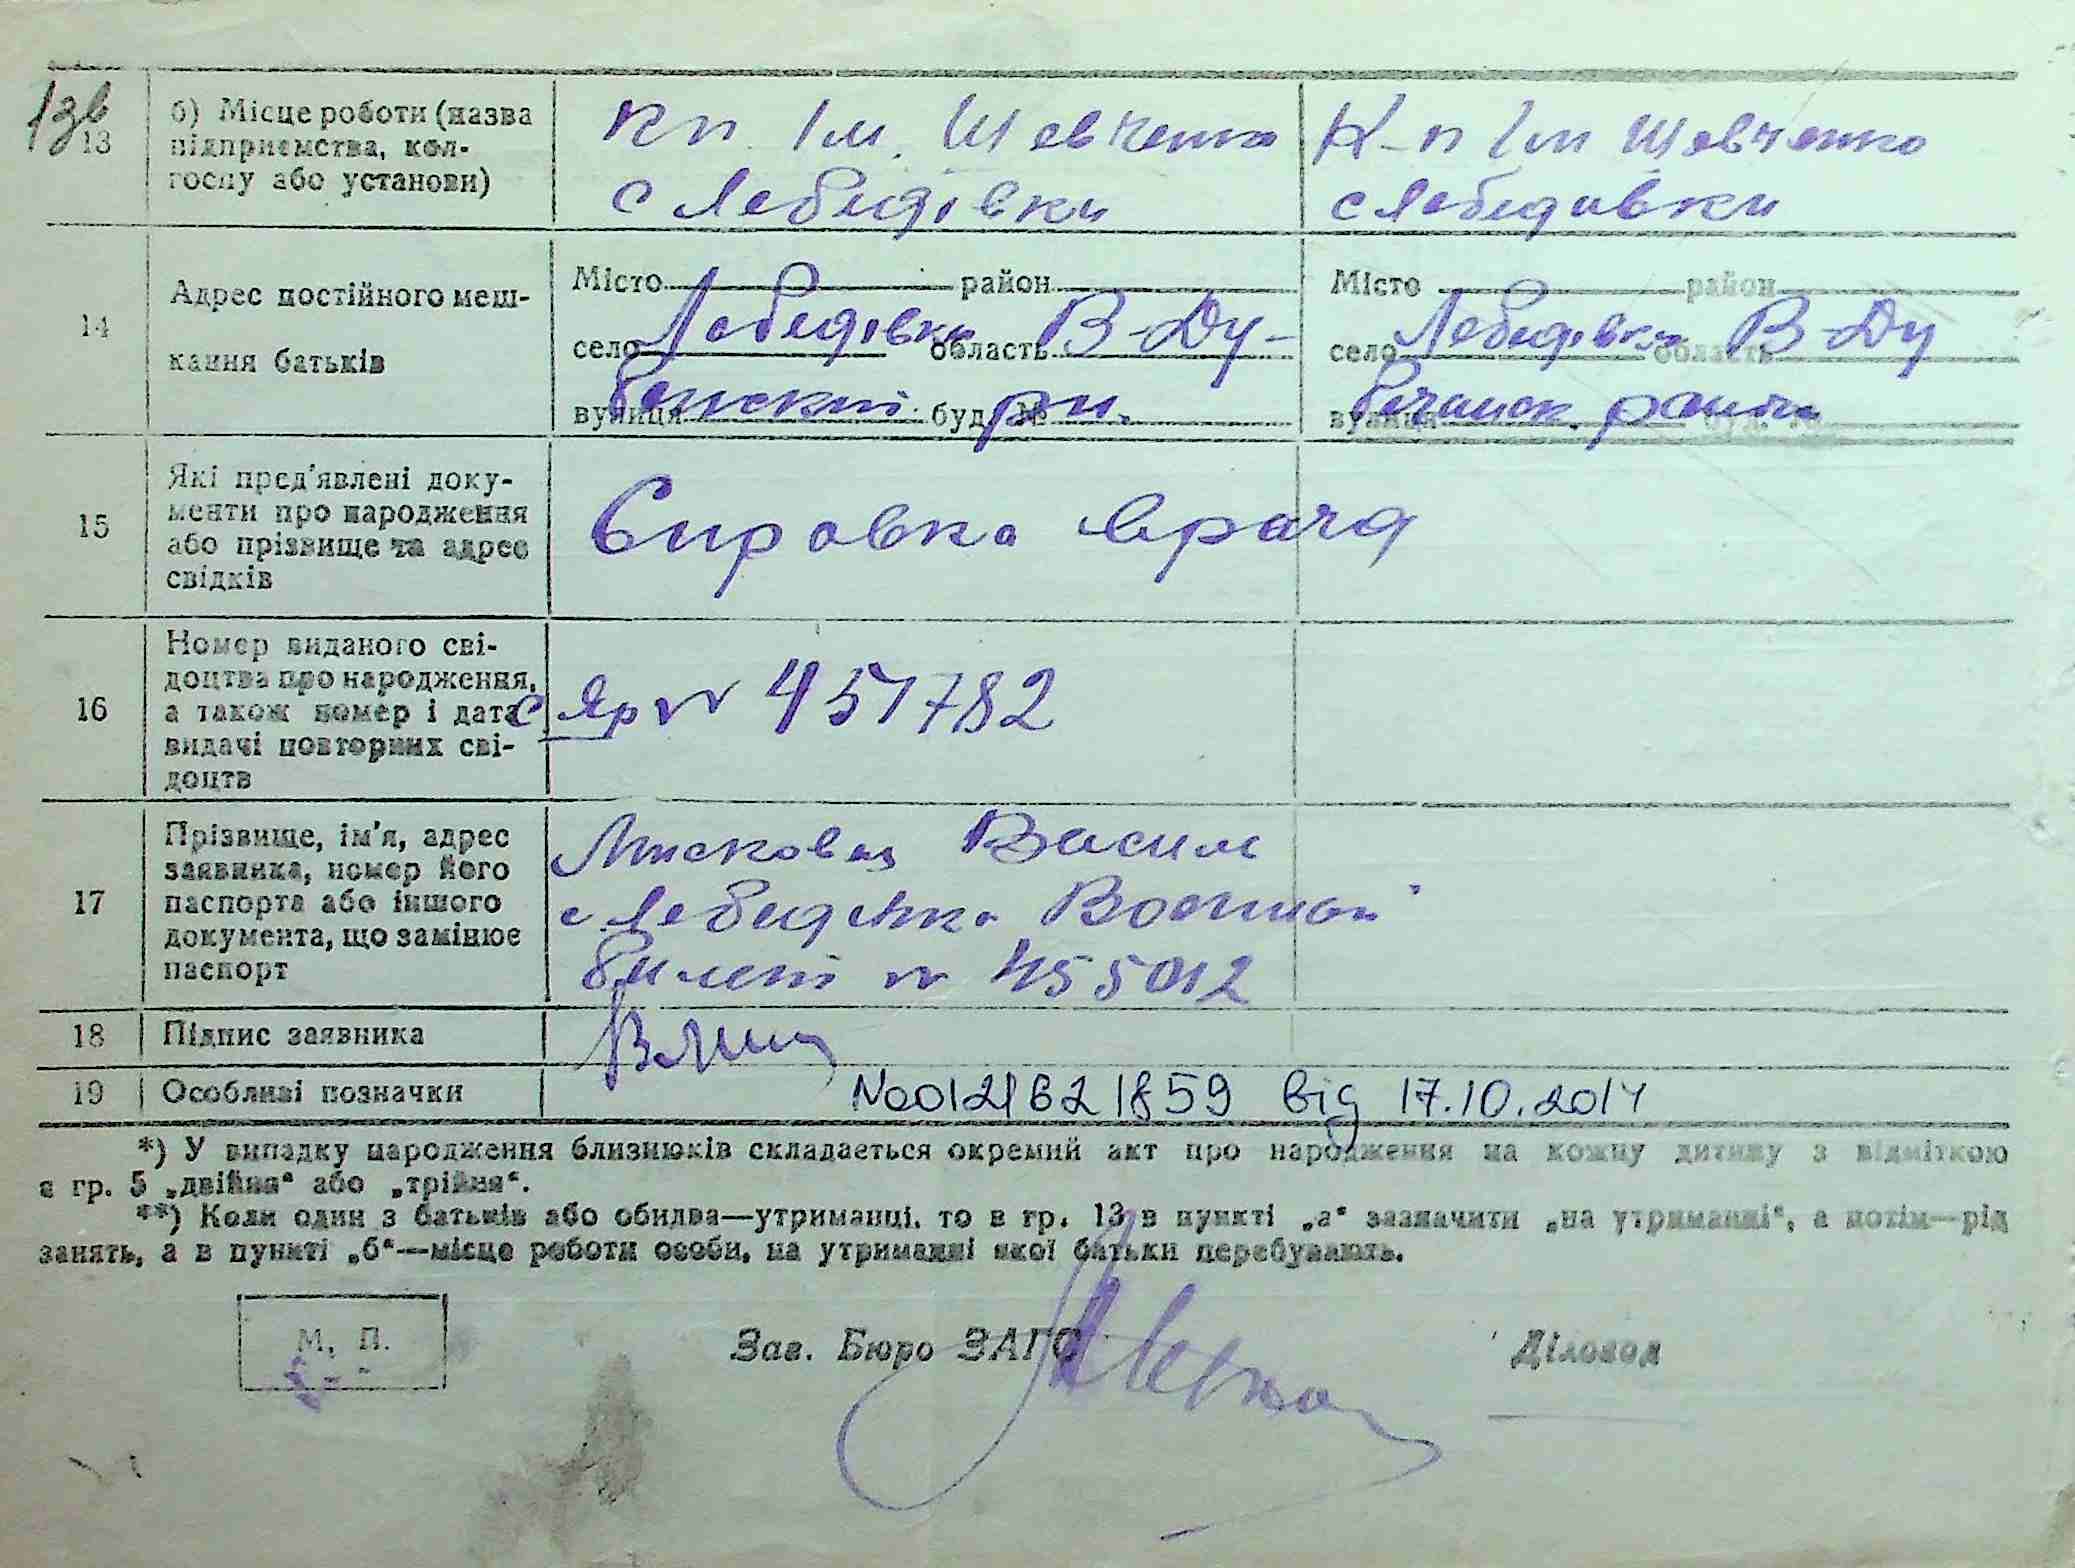 13в
13
б) Місце роботи (назва
підприємства, кол-
госпу або установи)
Кп. Ім. Шевченка
с Лебедівки
К-п Ім Шевченко
с Лебедивки
14
Адрес постійного меш-
кання батьків
Місто район
село Лебедівки область В-Ду-
вулиця буд. № рн.
Місто район
село Лебедівки область В-Ду
вулиця буд. №
15
Які пред'явлені доку-
менти про народження
або прізвище та адрес
свідків
Справка врача
16
Номер виданого сві-
доцтва про народження,
а також номер і дата
видачі повторних сві-
доцтв
с. Яр № 451782
17
Прізвище, ім'я, адрес
заявника, номер його
паспорта або іншого
документа, що замінює
паспорт
Василь
с Лебедівка Военный
билет № 455012
18
Підпис заявника
19
Особливі позначки
№00121621859 від 17.10.2014
*) У випадку народження близнюків складається окремий акт про народження на кожну дитину з відміткою
в гр. 5 „двійня“ або „трійня“.
**) Коли один з батьків або обидва—утриманці, то в гр. 13 в пункті „а“ зазначити „на утриманні“, а потім—рід
занять, а в пункті „б“—місце роботи особи, на утриманні якої батьки перебувають.
М. П.
Зав. Бюро ЗАГС
Діловод